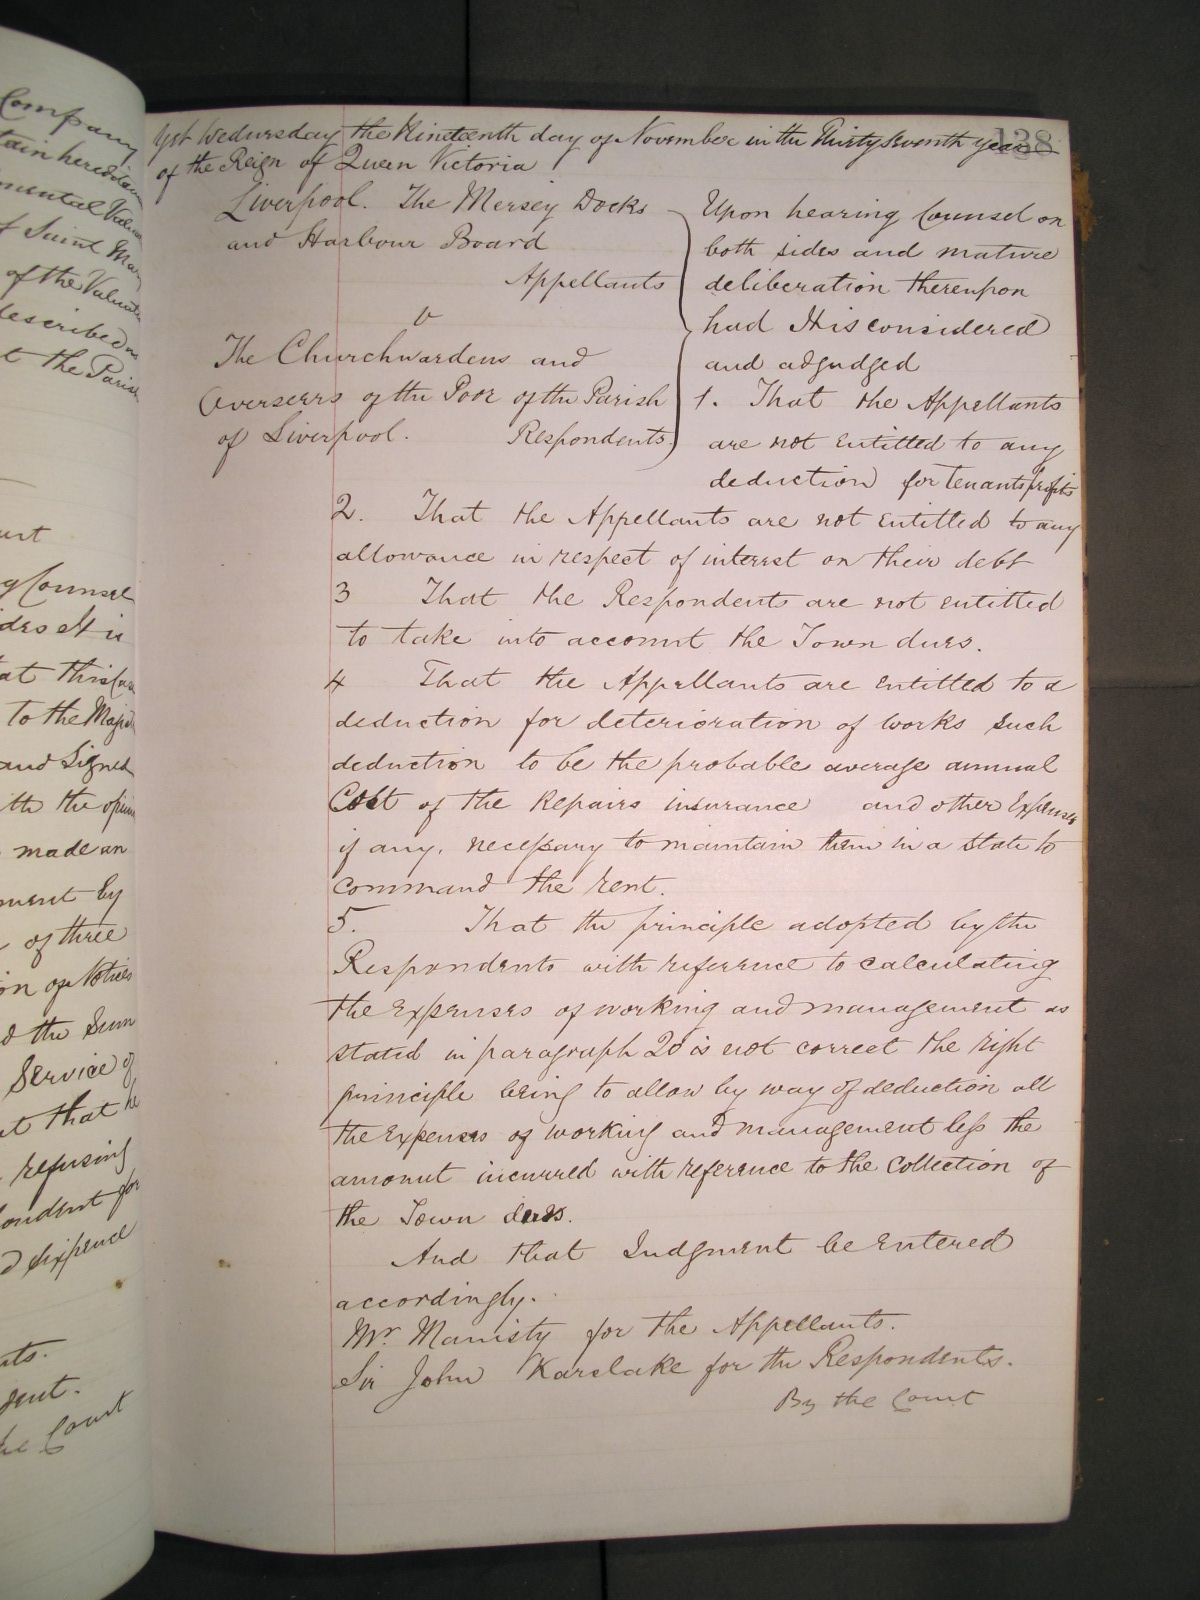 Company
tain heredita
of Saint Mar
of the Valuati
described in
t the Parish
urt
g Counsel
ides It is
at this Case
to the Magis
and Signed
ith the opini
made an
ment by
of three
on of Notices
d the Sum
Service of
at that he
refusing
ondent for
d sixpence
nts.
ent.
he Court
138
Yet Wednesday the Nineteenth day of November in the Thirty seventh year
of the Reign of Queen Victoria
Liverpool. The Mersey Docks
and Harbour Board
Appellants
v
The Churchwardens and
Overseers of the Poor of the Parish
of Liverpool. Respondents.
Upon hearing Counsel on
both sides and mature
deliberation thereupon
had It is considered
and adjudged
1. That the Appellants
are not entitled to any
deduction for tenants profits
2. That the Appellants are not entitled to any
allowance in respect of interest on their debt
3 That the Respondents are not entitled
to take into account the Town dues.
4 That the Appellants are entitled to a
deduction for deterioration of works such
deduction to be the probable average annual
Cost of the Repairs insurance and other Expenses
if any, necessary to maintain them in a state to
command the rent.
5. That the principle adopted by the
Respondents with reference to calculating
the expenses of working and management as
stated in paragraph 20 is not correct the right
principle being to allow by way of deduction all
the expenses of working and management less the
amount incurred with reference to the Collection of
the Town dues.
And that Judgment be entered
accordingly.
Mr. Manisty for the Appellants.
Sir John Karslake for the Respondents.
By the Court